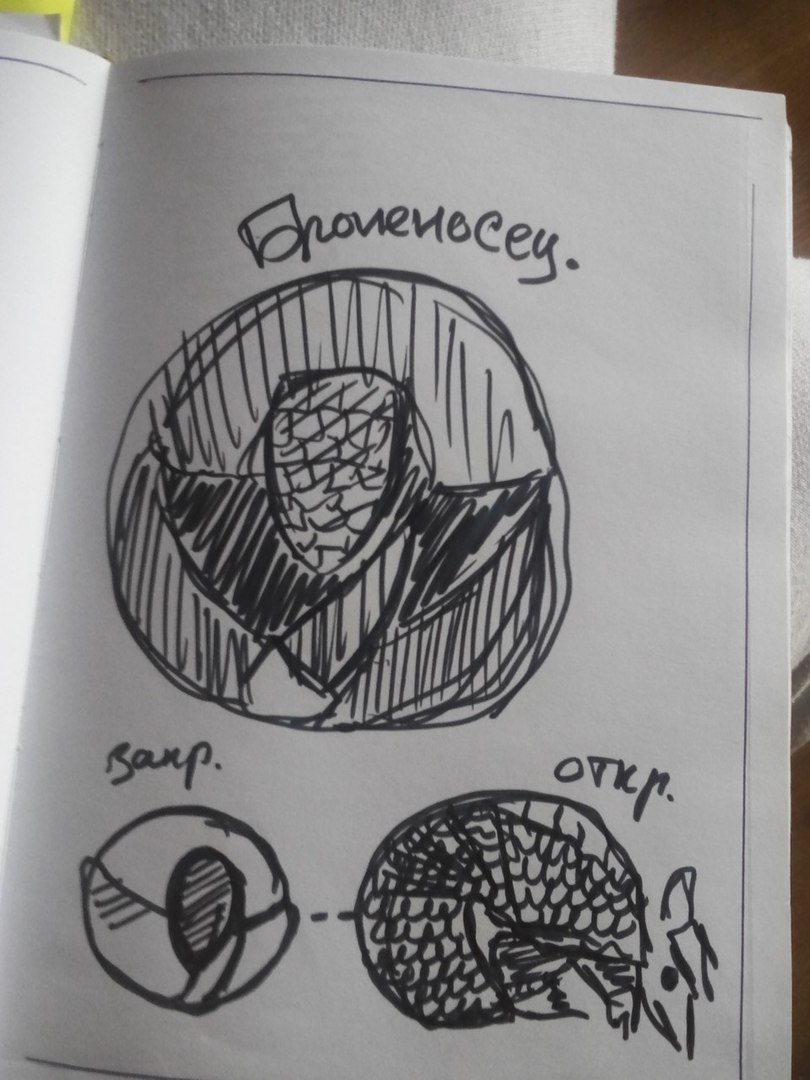 Броненосец.
закр.
откр.